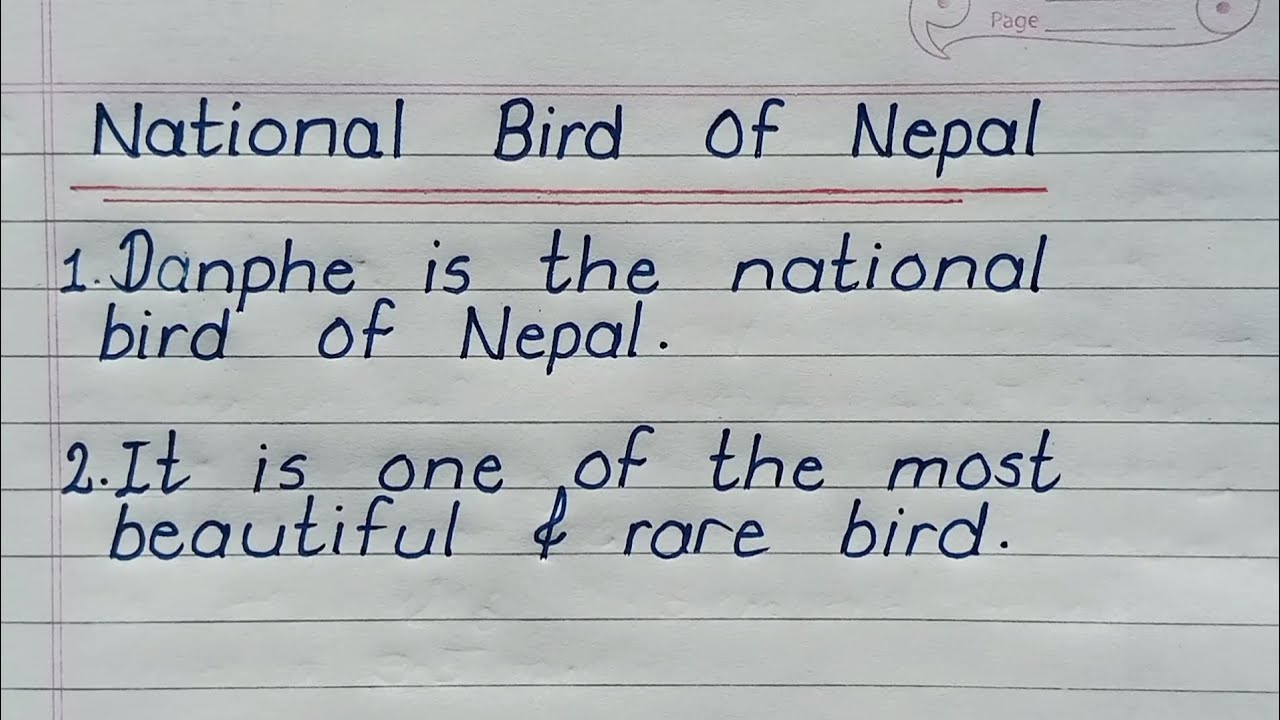 Page
National Bird Of Nepal
1. Danphe is the national
bird of Nepal.
2. It is one of the most
beautiful & rare bird.